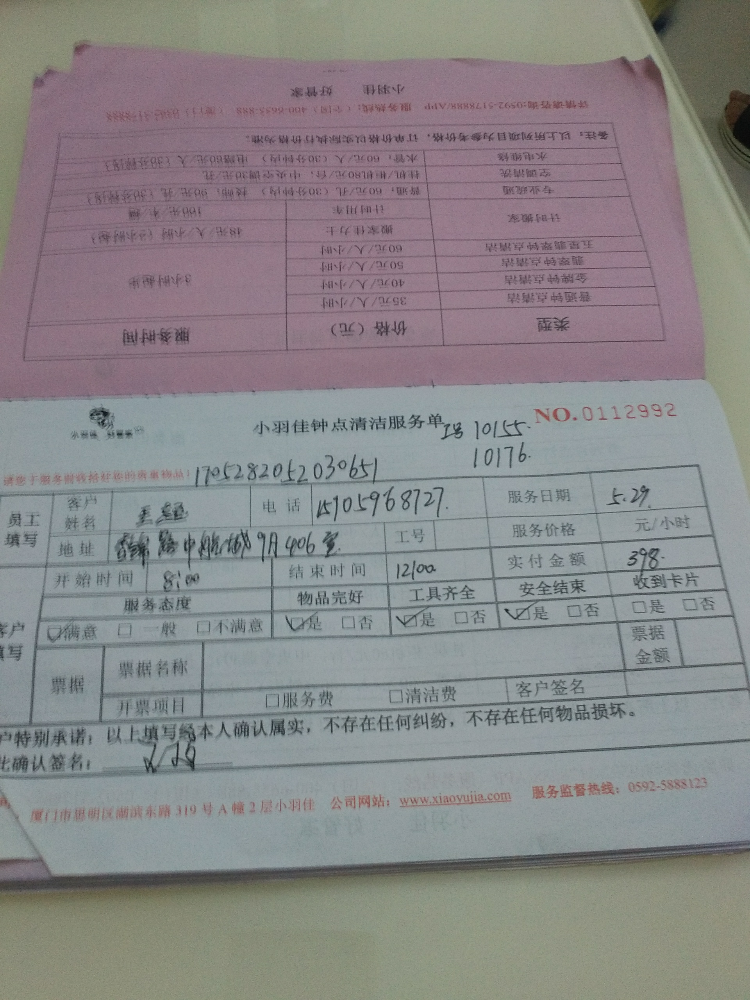 小羽佳 好管家
详情请咨询:0592-5178888/APP 服务热线:(全国)400-6655-888
备注:以上所列项目均为参考价格,订单价格以实际执行价格为准。
类型 价格(元) 服务时间
普通钟点清洁 35元/人/小时 3小时起步
金牌钟点清洁 40元/人/小时
翡翠钟点清洁 50元/人/小时
五星翡翠钟点清洁 60元/人/小时
计时搬家 搬家佳力士 48元/人/小时(2小时起)
计时用车 100元/车/趟
专业疏通 普通:60元/孔(30分钟内)
空调清洗 挂机/柜机180元/台;中央空调30元/孔
水电维修 水管:60元/人(30分钟内)
小羽佳钟点清洁服务单 工号 10155.
NO.0112992
10176.
请您于服务前收拾好您的贵重物品! 1705282052030651
员工填写 客户姓名 电话 15905968727. 服务日期 5.29.
地址 9月406室 工号 服务价格 元/小时
开始时间 8:00 结束时间 12:00 实付金额 398.
服务态度 物品完好 工具齐全 安全结束 收到卡片
客户填写 ☑满意 □ 一般 □不满意 ☑是 □否 ☑是 □否 ☑是 □否 □是 □否
票据 票据名称 票据金额
开票项目 □服务费 □清洁费 客户签名
户特别承诺:以上填写经本人确认属实,不存在任何纠纷,不存在任何物品损坏。
此确认签名:
厦门市思明区湖滨东路 319 号 A 幢 2 层小羽佳 公司网站:www.xiaoyujia.com 服务监督热线:0592-5888123